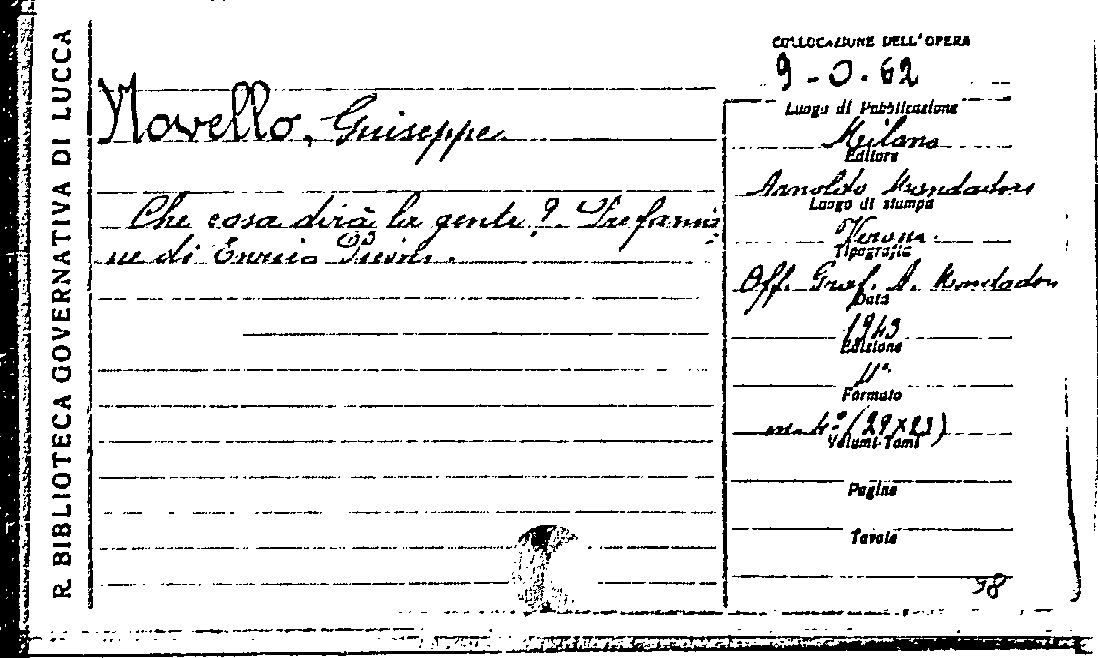 R. BIBLIOTECA GOVERNATIVA DI LUCCA
COLLOCAZIONE DELL'OPERA
9-0.62
Novello, Giuseppe
Che cosa dirà la gente? Prefazio
ne di Enrico Piceni.
Luogo di Pubblicazione
Milano
Editore
Arnoldo Mondadori
Luogo di stampa
Verona
Tipografia
Off. Graf. A. Mondadori
Data
1943
Edizione
Formato
4° (29x23)
Volumi-Tomi
Pagine
Tavole
98